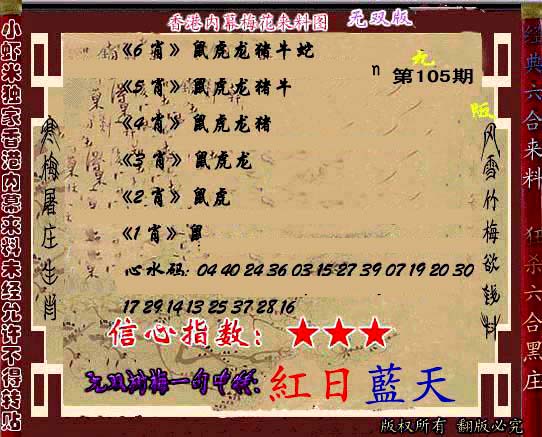 香港内幕梅花来料图 无双版
《6 肖》 鼠虎龙猪牛蛇
n 第105期
《5 肖》 鼠虎龙猪牛
《4 肖》 鼠虎龙猪
《3 肖》 鼠虎龙
《2 肖》 鼠虎
《1 肖》 鼠
心水码: 04 40 24 36 03 15 27 39 07 19 20 30
17 29 14 13 25 37 28.16
信心指数: ★★★
无双剑梅一句中特: 紅日藍天
小虾米独家香港内幕来料未经允许不得转贴
寒梅屠庄生肖
风雪竹梅欲钱料
经典六合来料 狂杀六合黑庄
版权所有 翻版必究